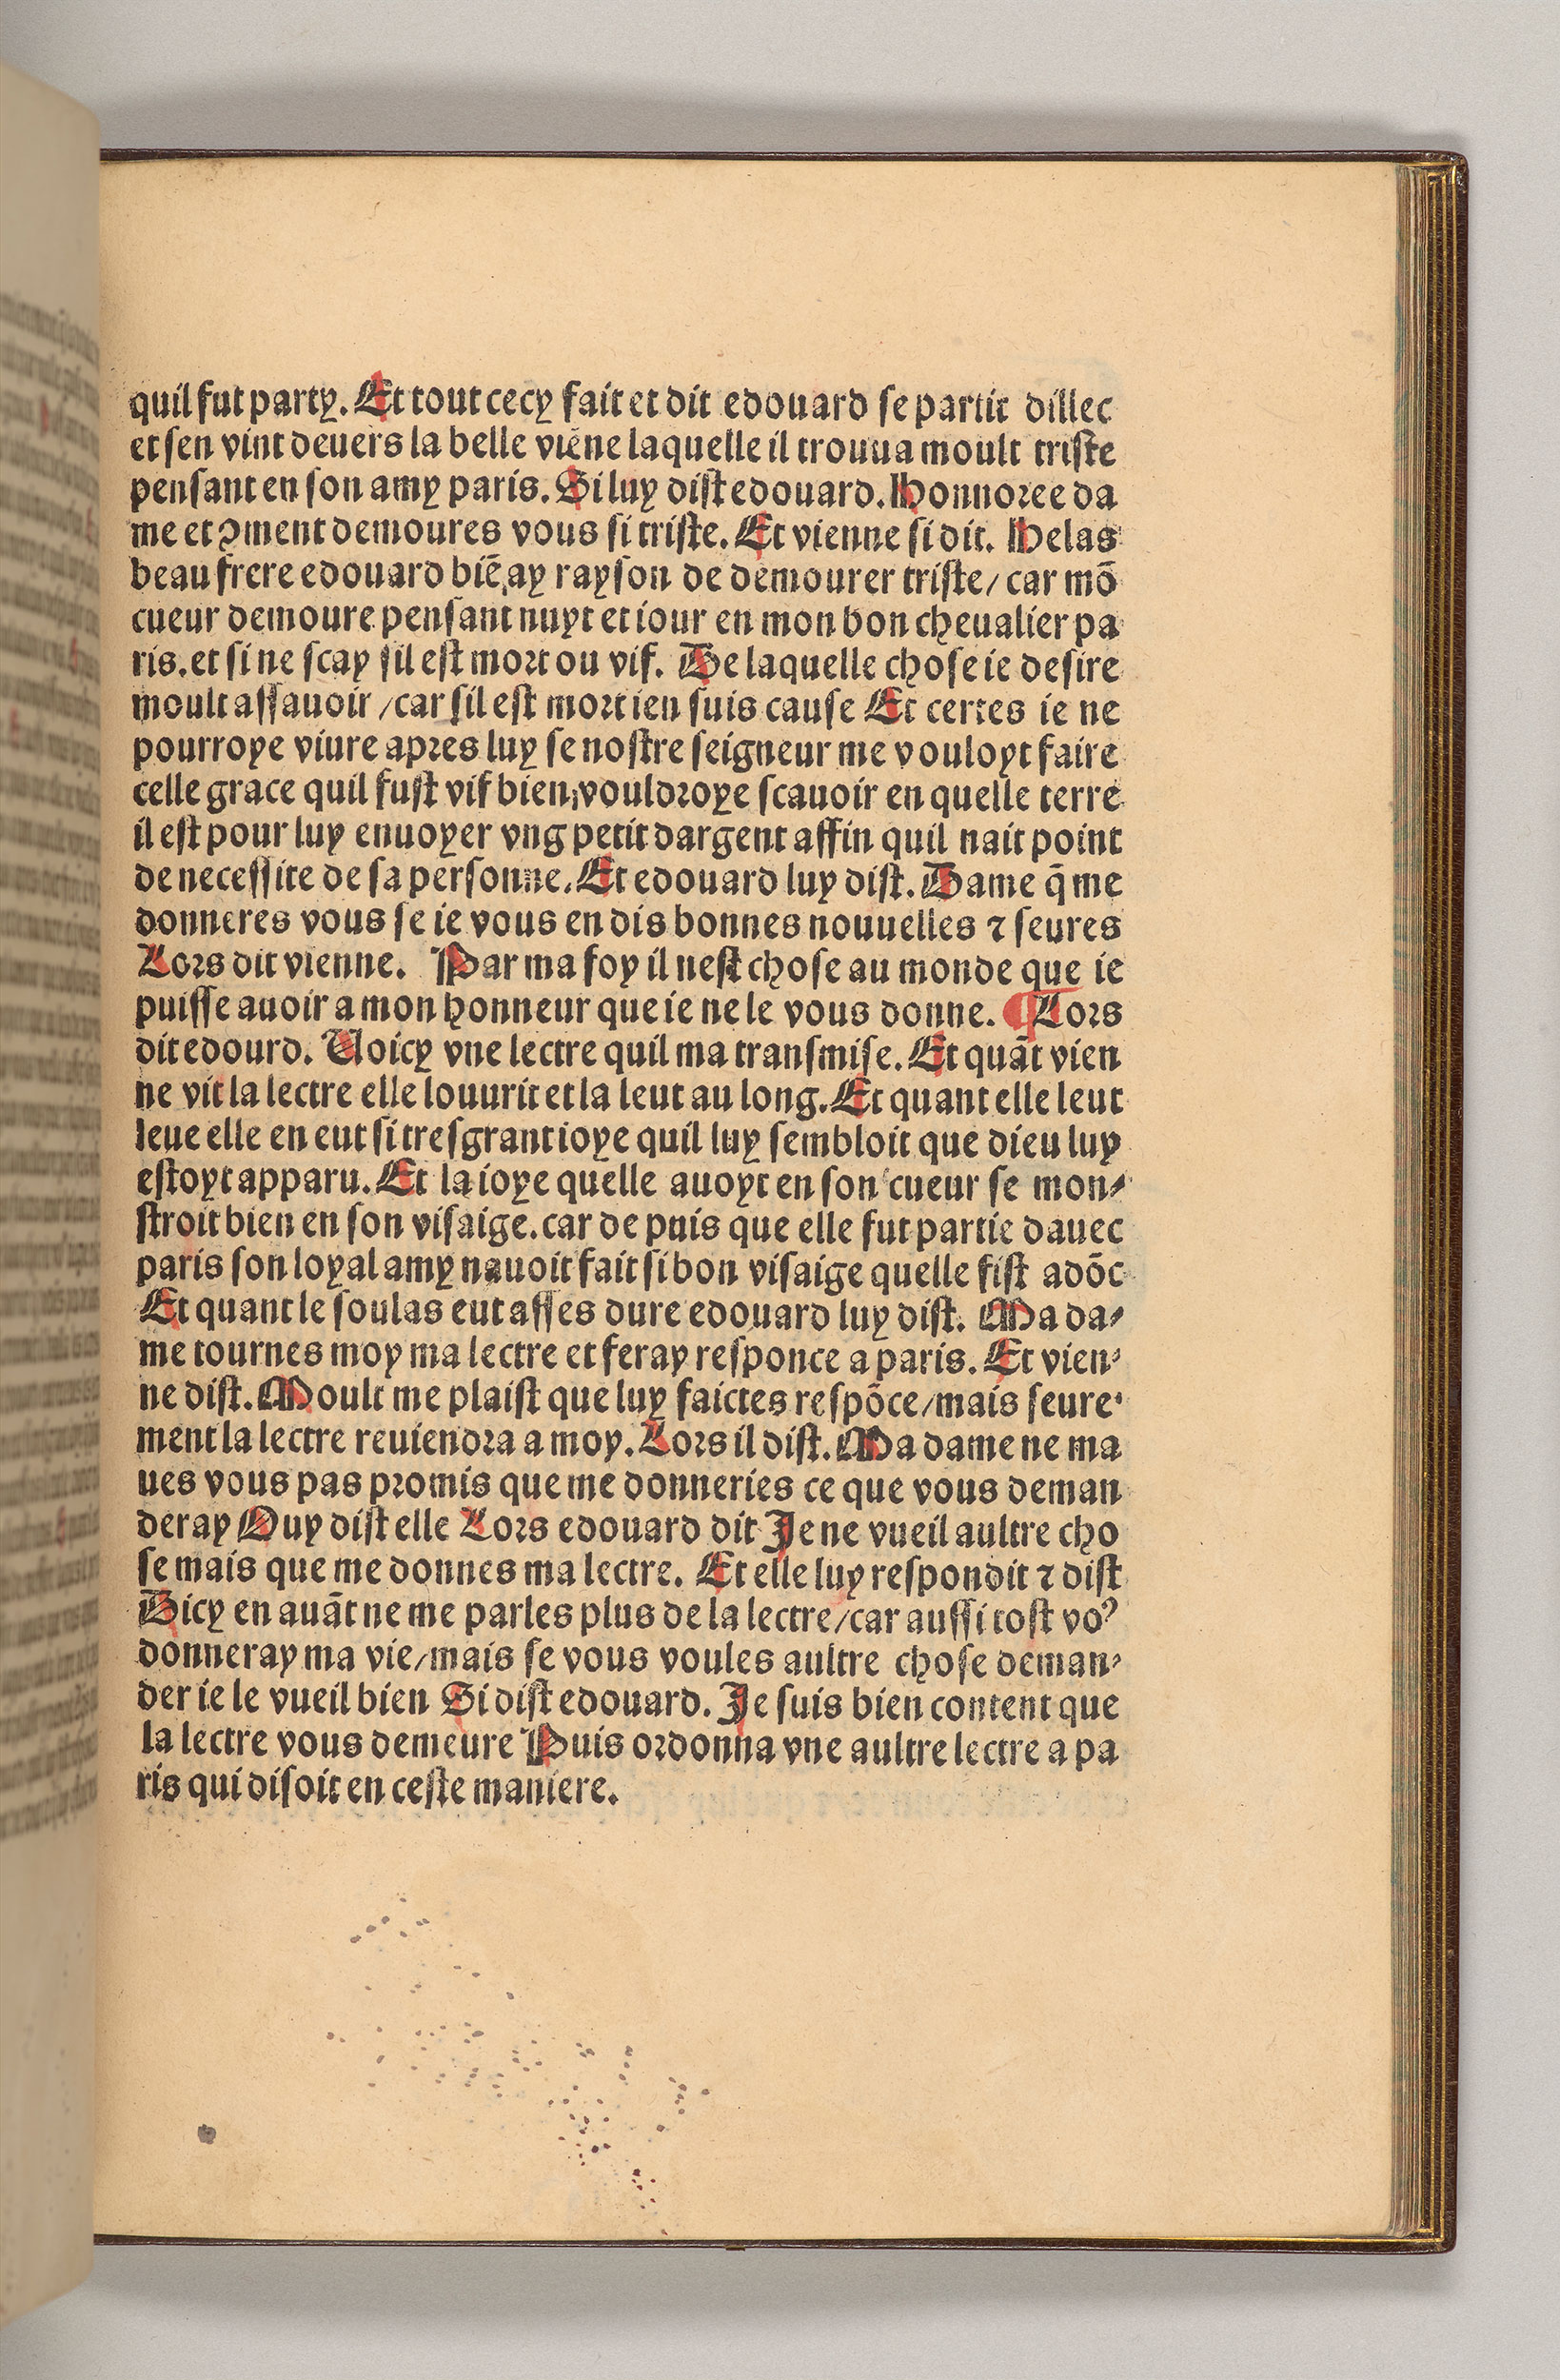 quil fut party. Et tout cecy fait et dit edouard se partit dillec
et sen vint deuers la belle viēne laquelle il trouua moult triste
pensant en son amy paris. Si luy dist edouard. Honnoree da
me et ꝯment demoures vous si triste. Et vienne si dit. Helas
beau frere edouard biē ay rayson de demourer triste/ car mō
cueur demoure pensant nuyt et iour en mon bon cheualier pa
ris. et si ne scay sil est mort ou vif. De laquelle chose ie desire
moult assauoir /car sil est mort ien suis cause Et certes ie ne
pourroye viure apres luy se nostre seigneur me vouloyt faire
celle grace quil fust vif bien vouldroye scauoir en quelle terre
il est pour luy enuoyer vng petit dargent affin quil nait point
de necessite de sa personne. Et edouard luy dist. Dame q̄ me
donneres vous se ie vous en dis bonnes nouuelles ⁊ seures
Lors dit vienne. Par ma foy il nest chose au monde que ie
puisse auoir a mon honneur que ie ne le vous donne. ¶ Lors
dit edourd. Uoicy vne lectre quil ma transmise. Et quāt vien
ne vit la lectre elle louurit et la leut au long. Et quant elle leut
leue elle en eut si tresgrant ioye quil luy sembloit que dieu luy
estoyt apparu. Et la ioye quelle auoyt en son cueur se mon⸗
stroit bien en son visaige. car de puis que elle fut partie dauec
paris son loyal amy nauoit fait si bon visaige quelle fist adōc
Et quant le soulas eut asses dure edouard luy dist. Ma da⸗
me tournes moy ma lectre et feray responce a paris. Et vien⸗
ne dist. Moult me plaist que luy faictes respōce/mais seure⸗
ment la lectre reuiendra a moy. Lors il dist. Ma dame ne ma
ues vous pas promis que me donneries ce que vous deman
deray Ouy dist elle Lors edouard dit Je ne vueil aultre cho
se mais que me donnes ma lectre. Et elle luy respondit ⁊ dist
Dicy en auāt ne me parles plus de la lectre/car aussi tost voꝰ
donneray ma vie/mais se vous voules aultre chose deman⸗
der ie le vueil bien Si dist edouard. Je suis bien content que
la lectre vous demeure Puis ordonna vne aultre lectre a pa
ris qui disoit en ceste maniere.